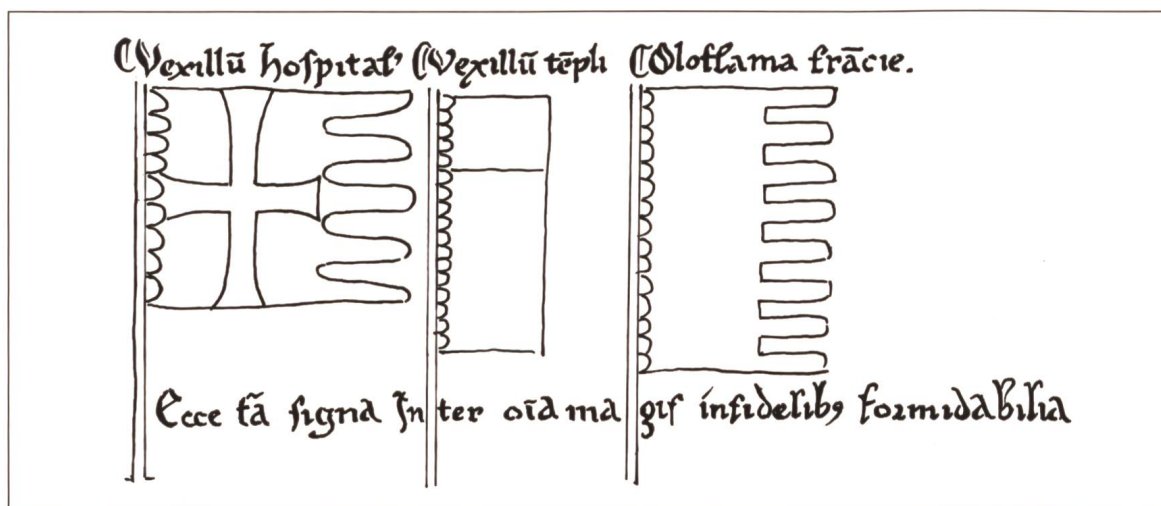 Vexillū hospital' Vexillū tēpli Oloflama frācie.
Ecce tā signa Inter oīa magis infidelibꝫ formidabilia